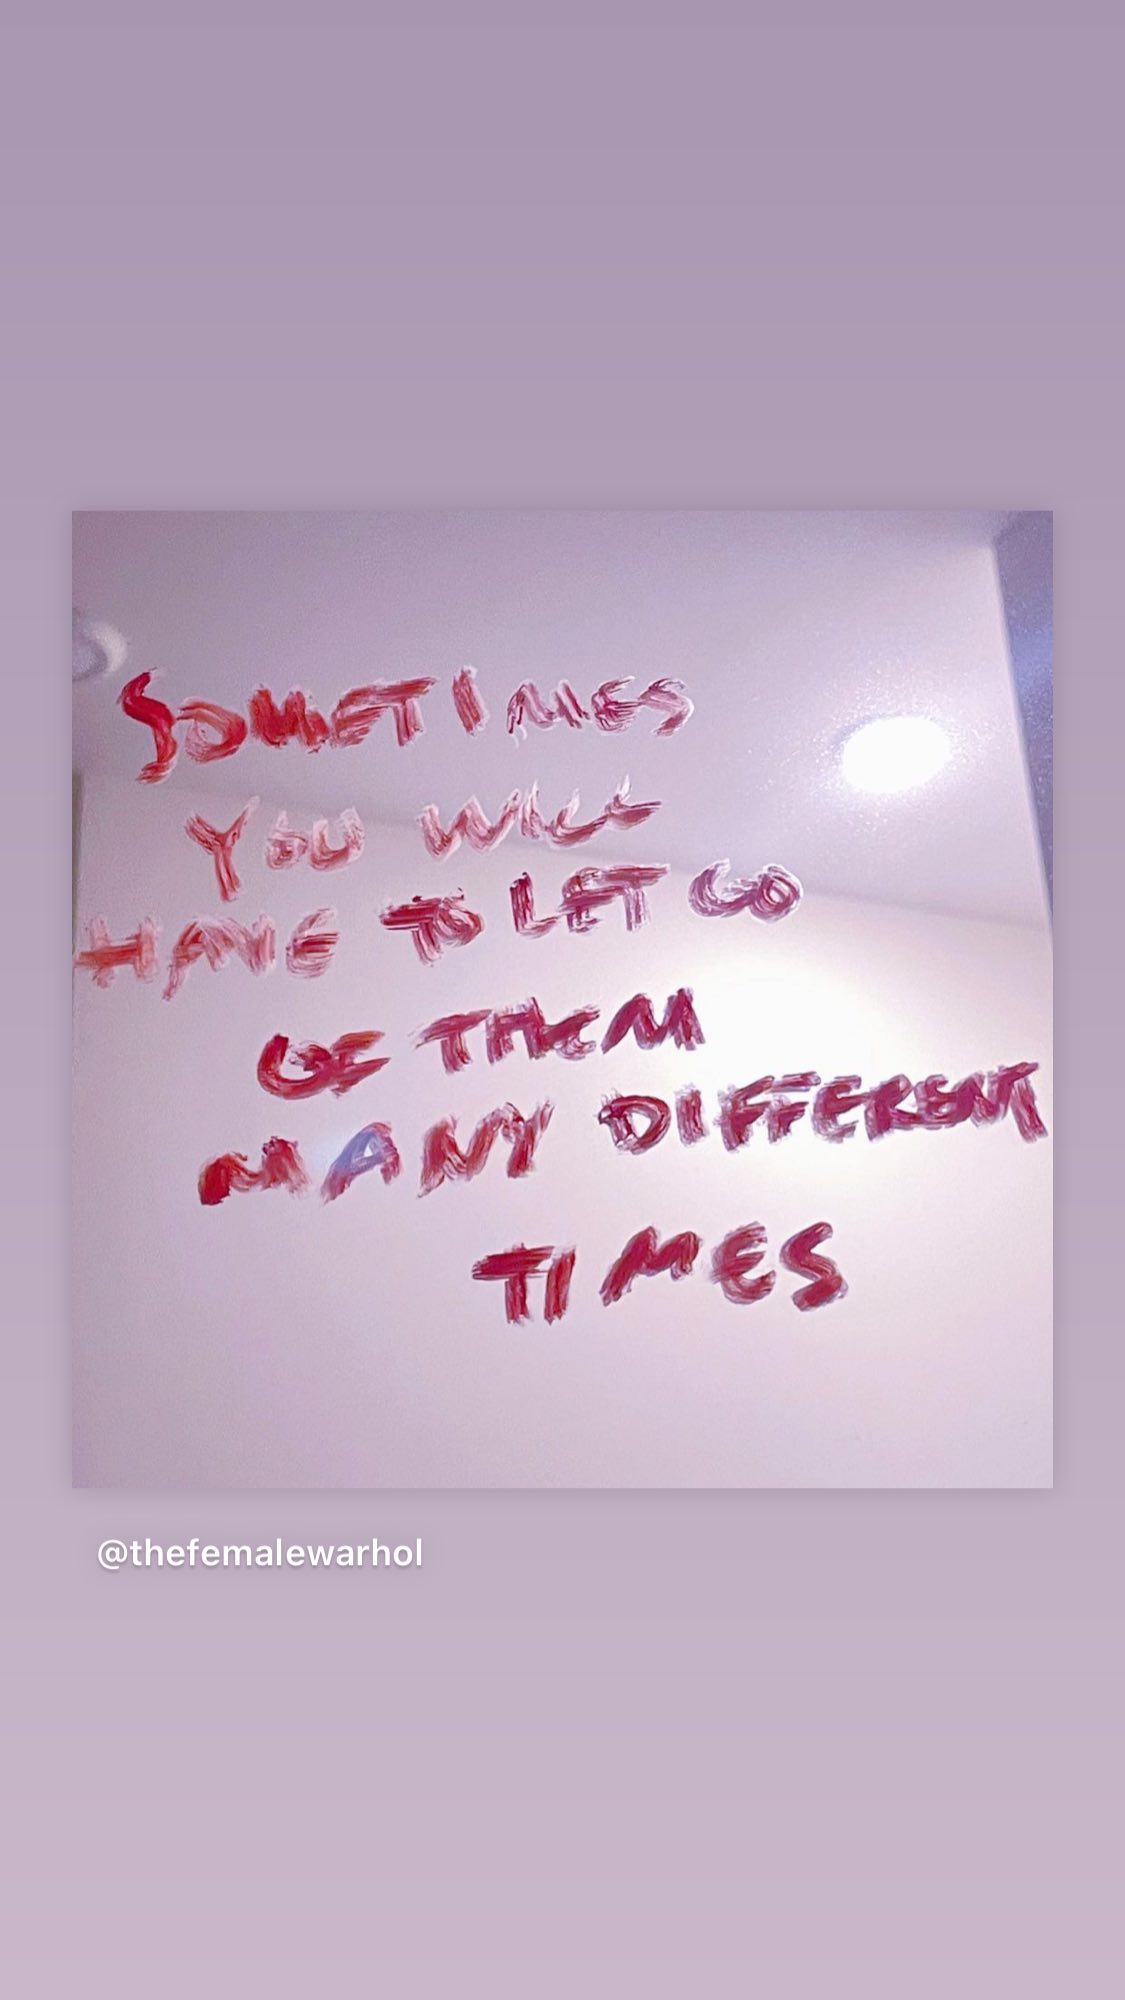 SOMETIMES
YOU WILL
HAVE TO LET GO
OF THEM
MANY DIFFERENT
TIMES
@thefemalewarhol